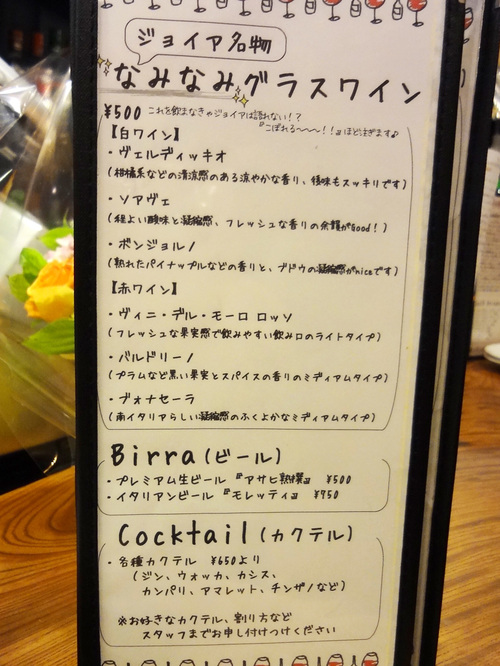 ジョイア名物
なみなみグラスワイン
¥500 これを飲まなきゃジョイアは語れない!?
『こぼれる〜〜〜!!』ほど注ぎます♪
【白ワイン】
・ヴェルディッキオ
(柑橘系などの清涼感のある涼やかな香り、後味もスッキリです)
・ソアヴェ
(程よい酸味と凝縮感、フレッシュな香りの余韻がGood!)
・ボンジョルノ
(熟れたパイナップルなどの香りと、ブドウの凝縮感がniceです)
【赤ワイン】
・ヴィニ・デル・モーロ ロッソ
(フレッシュな果実感で飲みやすい飲み口のライトタイプ)
・バルドリーノ
(プラムなど黒い果実とスパイスの香りのミディアムタイプ)
・ブォナセーラ
(南イタリアらしい凝縮感のふくよかなミディアムタイプ)
Birra(ビール)
・プレミアム生ビール 『アサヒ熟撰』 ¥500
・イタリアンビール 『モレッティ』 ¥750
Cocktail(カクテル)
・各種カクテル ¥650より
(ジン、ウォッカ、カシス、
カンパリ、アマレット、チンザノなど)
※お好きなカクテル、割り方など
スタッフまでお申し付けつけください